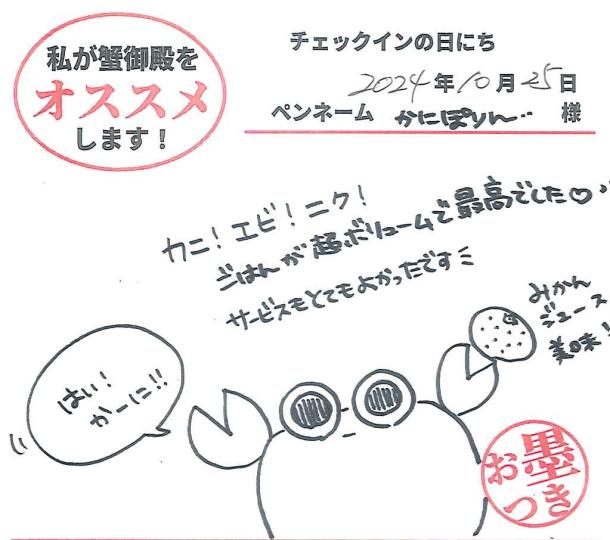 私が蟹御殿を
オススメ
します!
チェックインの日にち
2024年10月25日
ペンネーム かにぽりん 様
カニ!エビ!ニク!
ごはんが超ボリュームで最高でした♡
サービスもとてもよかったです
みかん
ジュース
美味!
はい!
かーに!!
お墨
つき